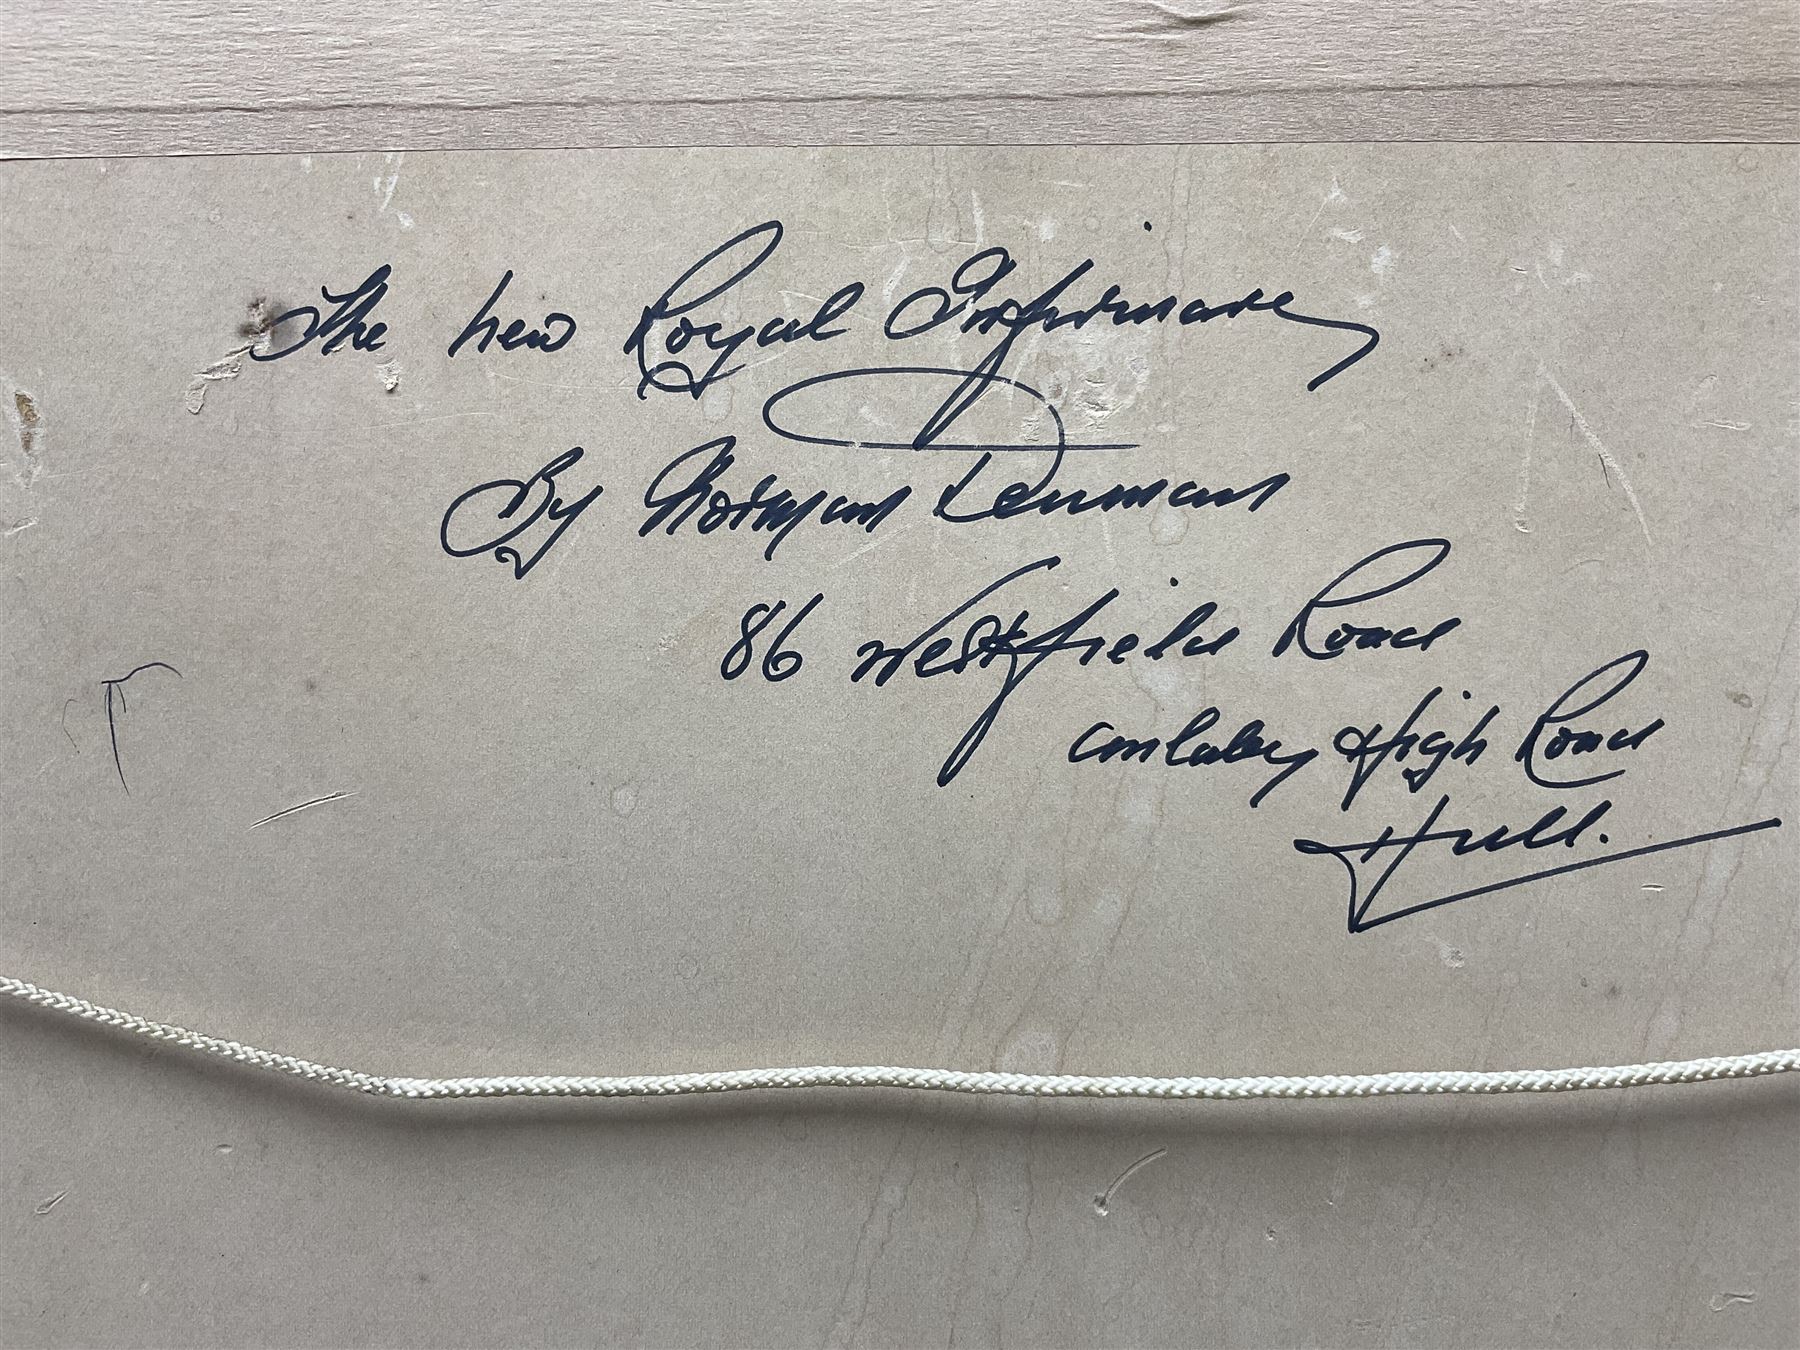 The new Royal Infirmary
By Norman Denman
86 Westfield Road
anlaby High Road
Hull.